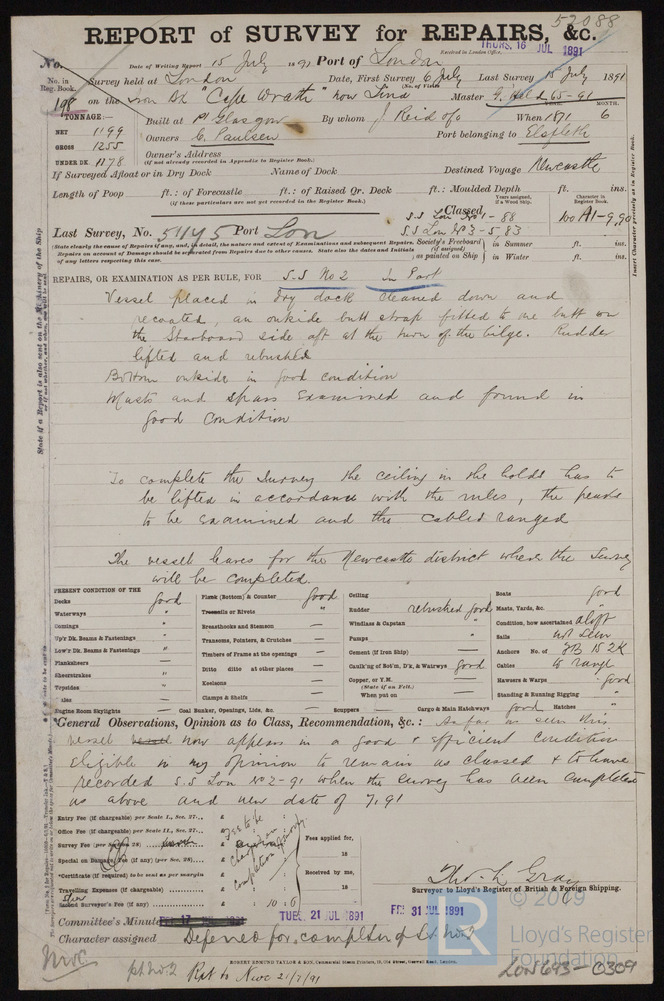 52088
REPORT of SURVEY for REPAIRS, &c.
Received in London Office, THURS. 16 JUL 1891
No. Date of Writing Report 15 July 1891 Port of London
No. in Reg. Book. Survey held at London Date, First Survey 6 July Last Survey 15 July 1891
(No. of Visits
198 on the Iron Bk "Cape Wrath" now Lina Master
TONNAGE:—
NET 1199
GROSS 1255
UNDER DK. 1178
Built at Pt Glasgow By whom J. Reid & Co When 1871 6
YEAR. MONTH.
Owners C. Paulsen Port belonging to Elsfleth
Owner's Address
(if not already recorded in Appendix to Register Book.)
If Surveyed Afloat or in Dry Dock Name of Dock Destined Voyage Newcastle
Length of Poop ft.: of Forecastle ft.: of Raised Qr. Deck ft.: Moulded Depth ft. ins.
(if these particulars are not yet recorded in the Register Book.)
Years assigned, if a Wood Ship. Character in Register Book.
Classed 100 A1-9,90
S.S Lon No 1-88
S.S Lon No 3-5,83
Last Survey, No. 51145 Port Lon
(State clearly the cause of Repairs if any, and, in detail, the nature and extent of Examinations and subsequent Repairs.
Repairs on account of Damage should be separated from Repairs due to other causes. State also the dates and Initials
of any letters respecting this case.
Society's Freeboard (if assigned) as painted on Ship
in Summer ft. ins.
in Winter ft. ins.
Insert Character precisely as in Register Book.
State if a Report is also sent on the Machinery of the Ship
REPAIRS, OR EXAMINATION AS PER RULE, FOR S.S No 2 In Part
Vessel placed in dry dock cleaned down and
recoated, an outside butt strap fitted to one butt on
the Starboard side aft at the turn of the bilge. Rudder
lifted and rebushed
Bottom outside in good condition
Masts and spars Examined and found in
good condition
To complete the Survey the ceiling in the holds has to
be lifted in accordance with the rules, the peaks
to be examined and the cables ranged
The vessel leaves for the Newcastle district where the Survey
will be completed.
PRESENT CONDITION OF THE
Decks good
Waterways "
Comings "
Up'r Dk. Beams & Fastenings "
Low'r Dk. Beams & Fastenings "
Planksheers —
Sheerstrakes "
Topsides "
Wales —
Engine Room Skylights —
Plank (Bottom) & Counter good
Treenails or Rivets "
Breasthooks and Stemson —
Transoms, Pointers, & Crutches —
Timbers of Frame at the openings —
Ditto ditto at other places —
Keelsons —
Clamps & Shelfs —
Coal Bunker, Openings, Lids, &c. —
Ceiling —
Rudder rebushed good
Windlass & Capstan "
Pumps —
Cement (if Iron Ship) —
Caulk'ng of Bot'm, D'k, & Watrwys good
Copper, or Y.M. —
(State if on Felt.)
When put on —
Scuppers — Cargo & Main Hatchways good
Boats good
Masts, Yards, &c. "
Condition, how ascertained aloft
Sails not seen
Anchors No. of 3B 1S 2K
Cables to range
Hawsers & Warps good
Standing & Running Rigging "
Hatches "
General Observations, Opinion as to Class, Recommendation, &c.: As far as seen this
vessel now appears in a good & efficient condition
eligible in my opinion to remain as classed & to have
recorded S.S Lon No 2-91 when the survey has been completed
as above and new date of 7,91
Entry Fee (if chargeable) per Scale I., Sec. 27...
Office Fee (if chargeable) per Scale II., Sec. 27...
Survey Fee (per Section 28)
Special on Damage Fee (if any) (per Sec. 28)....
*Certificate (if required) to be sent as per margin
Travelling Expenses (if chargeable)
Second Surveyor's Fee (if any) £ : 10 : 6
Fees to be charged on completion
Fees applied for,
18
Received by me,
18
Thos. L. Gray
Surveyor to Lloyd's Register of British & Foreign Shipping.
Committee's Minute TUES. 21 JUL 1891 FRI 31 JUL 1891
Character assigned Deferred for completn of S.S. No 2
pt. No. 2 Rpt to Nwc 21/7/91
Nwc
ROBERT EDMUND TAYLOR & SON, Commercial Steam Printers, 19, Old Street, Goswell Road, London.
LR
© 2019
Lloyd's Register
Foundation
LON693-0309